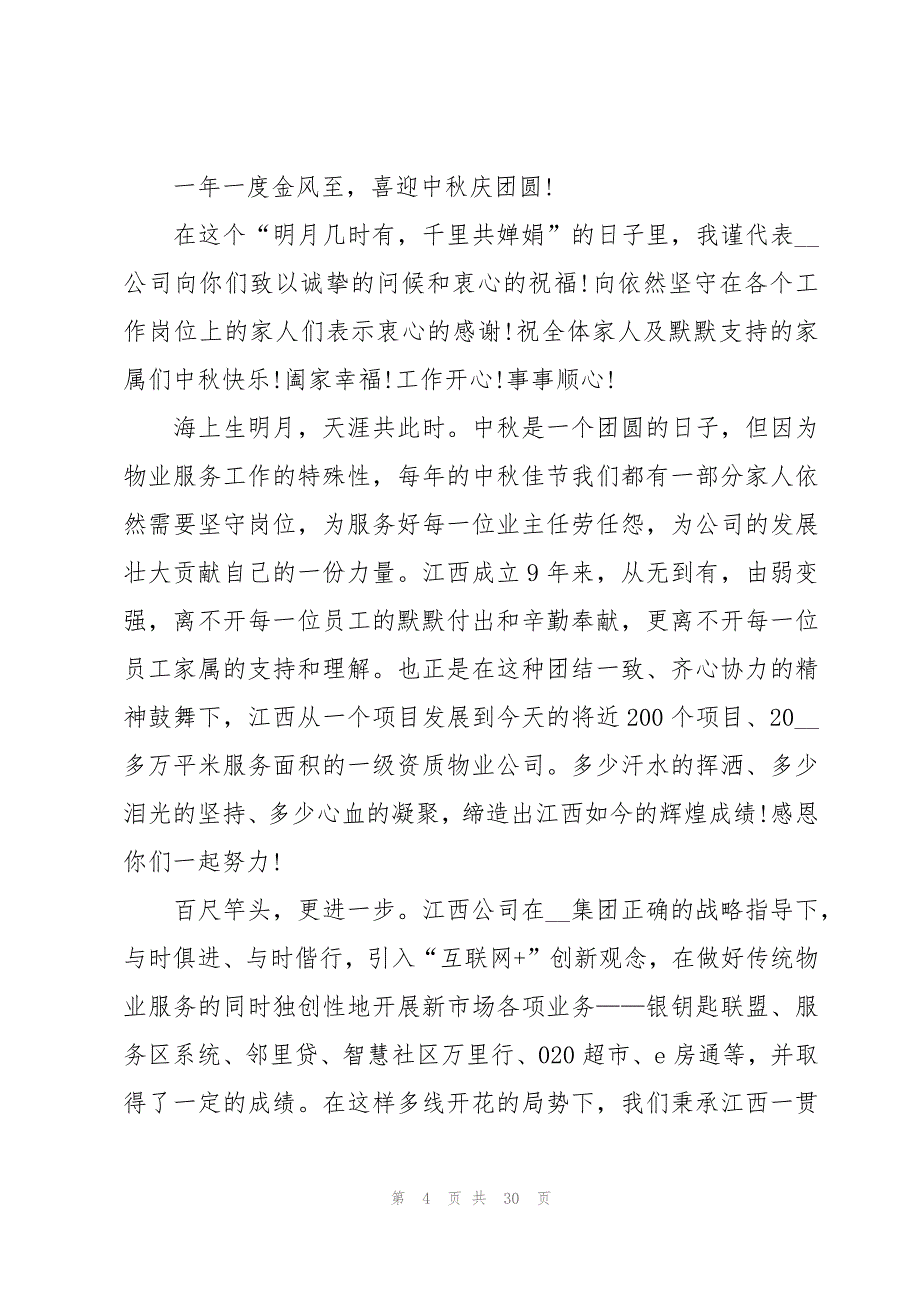 一年一度金风至，喜迎中秋庆团圆!
在这个“明月几时有，千里共婵娟”的日子里，我谨代表__
公司向你们致以诚挚的问候和衷心的祝福!向依然坚守在各个工
作岗位上的家人们表示衷心的感谢!祝全体家人及默默支持的家
属们中秋快乐!阖家幸福!工作开心!事事顺心!
海上生明月，天涯共此时。中秋是一个团圆的日子，但因为
物业服务工作的特殊性，每年的中秋佳节我们都有一部分家人依
然需要坚守岗位，为服务好每一位业主任劳任怨，为公司的发展
壮大贡献自己的一份力量。江西成立 9 年来，从无到有，由弱变
强，离不开每一位员工的默默付出和辛勤奉献，更离不开每一位
员工家属的支持和理解。也正是在这种团结一致、齐心协力的精
神鼓舞下，江西从一个项目发展到今天的将近 200 个项目、20__
多万平米服务面积的一级资质物业公司。多少汗水的挥洒、多少
泪光的坚持、多少心血的凝聚，缔造出江西如今的辉煌成绩!感恩
你们一起努力!
百尺竿头，更进一步。江西公司在__集团正确的战略指导下，
与时俱进、与时偕行，引入“互联网+”创新观念，在做好传统物
业服务的同时独创性地开展新市场各项业务——银钥匙联盟、服
务区系统、邻里贷、智慧社区万里行、020 超市、e 房通等，并取
得了一定的成绩。在这样多线开花的局势下，我们秉承江西一贯
第 4 页 共 30 页